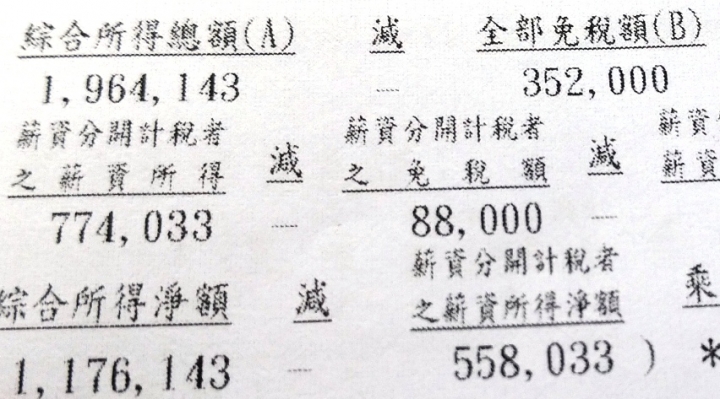 綜合所得總額(A) 減 全部免稅額(B)
1,964,143 — 352,000
薪資分開計稅者 薪資分開計稅者 薪資
之薪資所得 減 之免稅額 減 薪資
774,033 — 88,000 —
薪資分開計稅者
綜合所得淨額 減 之薪資所得淨額 乘
1,176,143 — 558,033 ) *